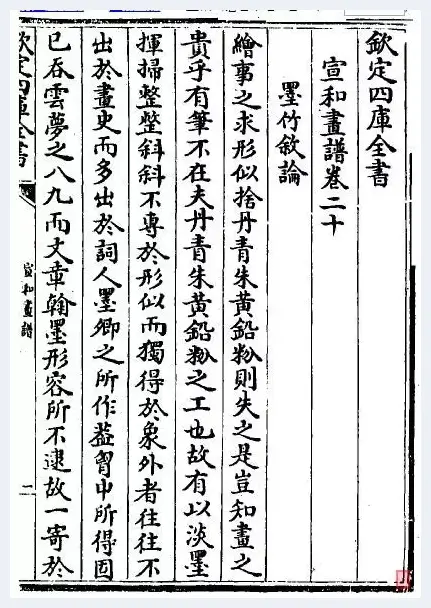 欽定四庫全書
宣和畫譜卷二十
墨竹敘論
繪事之求形似捨丹青朱黃鉛粉則失之是豈知畫之
貴乎有筆不在夫丹青朱黃鉛粉之工也故有以淡墨
揮掃整整斜斜不專於形似而獨得於象外者往往不
出於畫史而多出於詞人墨卿之所作蓋胷中所得固
已吞雲夢之八九而文章翰墨形容所不逮故一寄於
欽定四庫全書
宣和畫譜
二